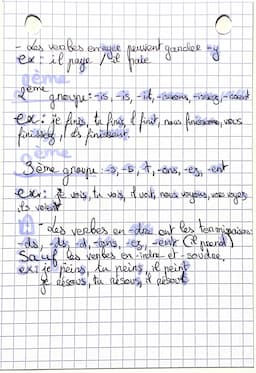 - Les verbes en ayer peuvent garder -y
ex: il paye / il paie
2ème
2ème groupe: -is, -is, -it, -issons, -issez, -issent
ex: je finis, tu finis, il finit, nous finissons, vous
finissez, ils finissent.
3ème
3ème groupe: -s, -s, t, -ons, -ez, -ent
ex: je vois, tu vois, il voit, nous voyons, vous voyez,
ils voient
- Les verbes en -dre ont les terminaisons:
-ds, -ds, -d, -ons, -ez, -ent (il prend)
Sauf les verbes en -indre et -soudre,
ex: je peins, tu peins, il peint
je résous, tu résous, il résout